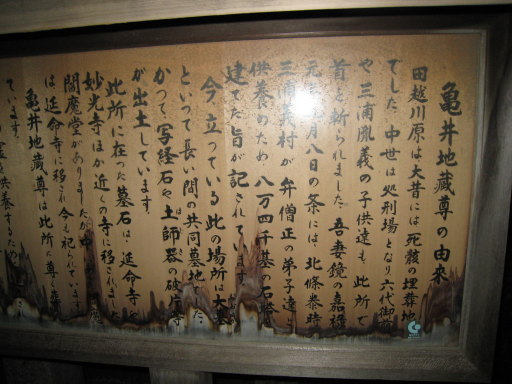 亀井地蔵尊の由来
田越川原は大昔には死骸の埋葬地
でした。中世は処刑場となり六代御前
や三浦胤義の子供達も此所で
首を斬られました。吾妻鏡の嘉禄
元年 月八日の条には、北條泰時
三浦義村が弁僧正の弟子達と
供養のため八万四千基の石塔
建てた旨が記されています
今立っている此の場所は大
といって長い間の共同墓地 た。
かつて写経石や土師器の破片等
が出土しています。
此所に在った墓石は、延命寺
妙光寺ほか近くの寺に移されました
閻魔堂がありましたが
は、延命寺に移され今も祀られています
亀井地蔵尊は此所に尊く
ています。
供養するため